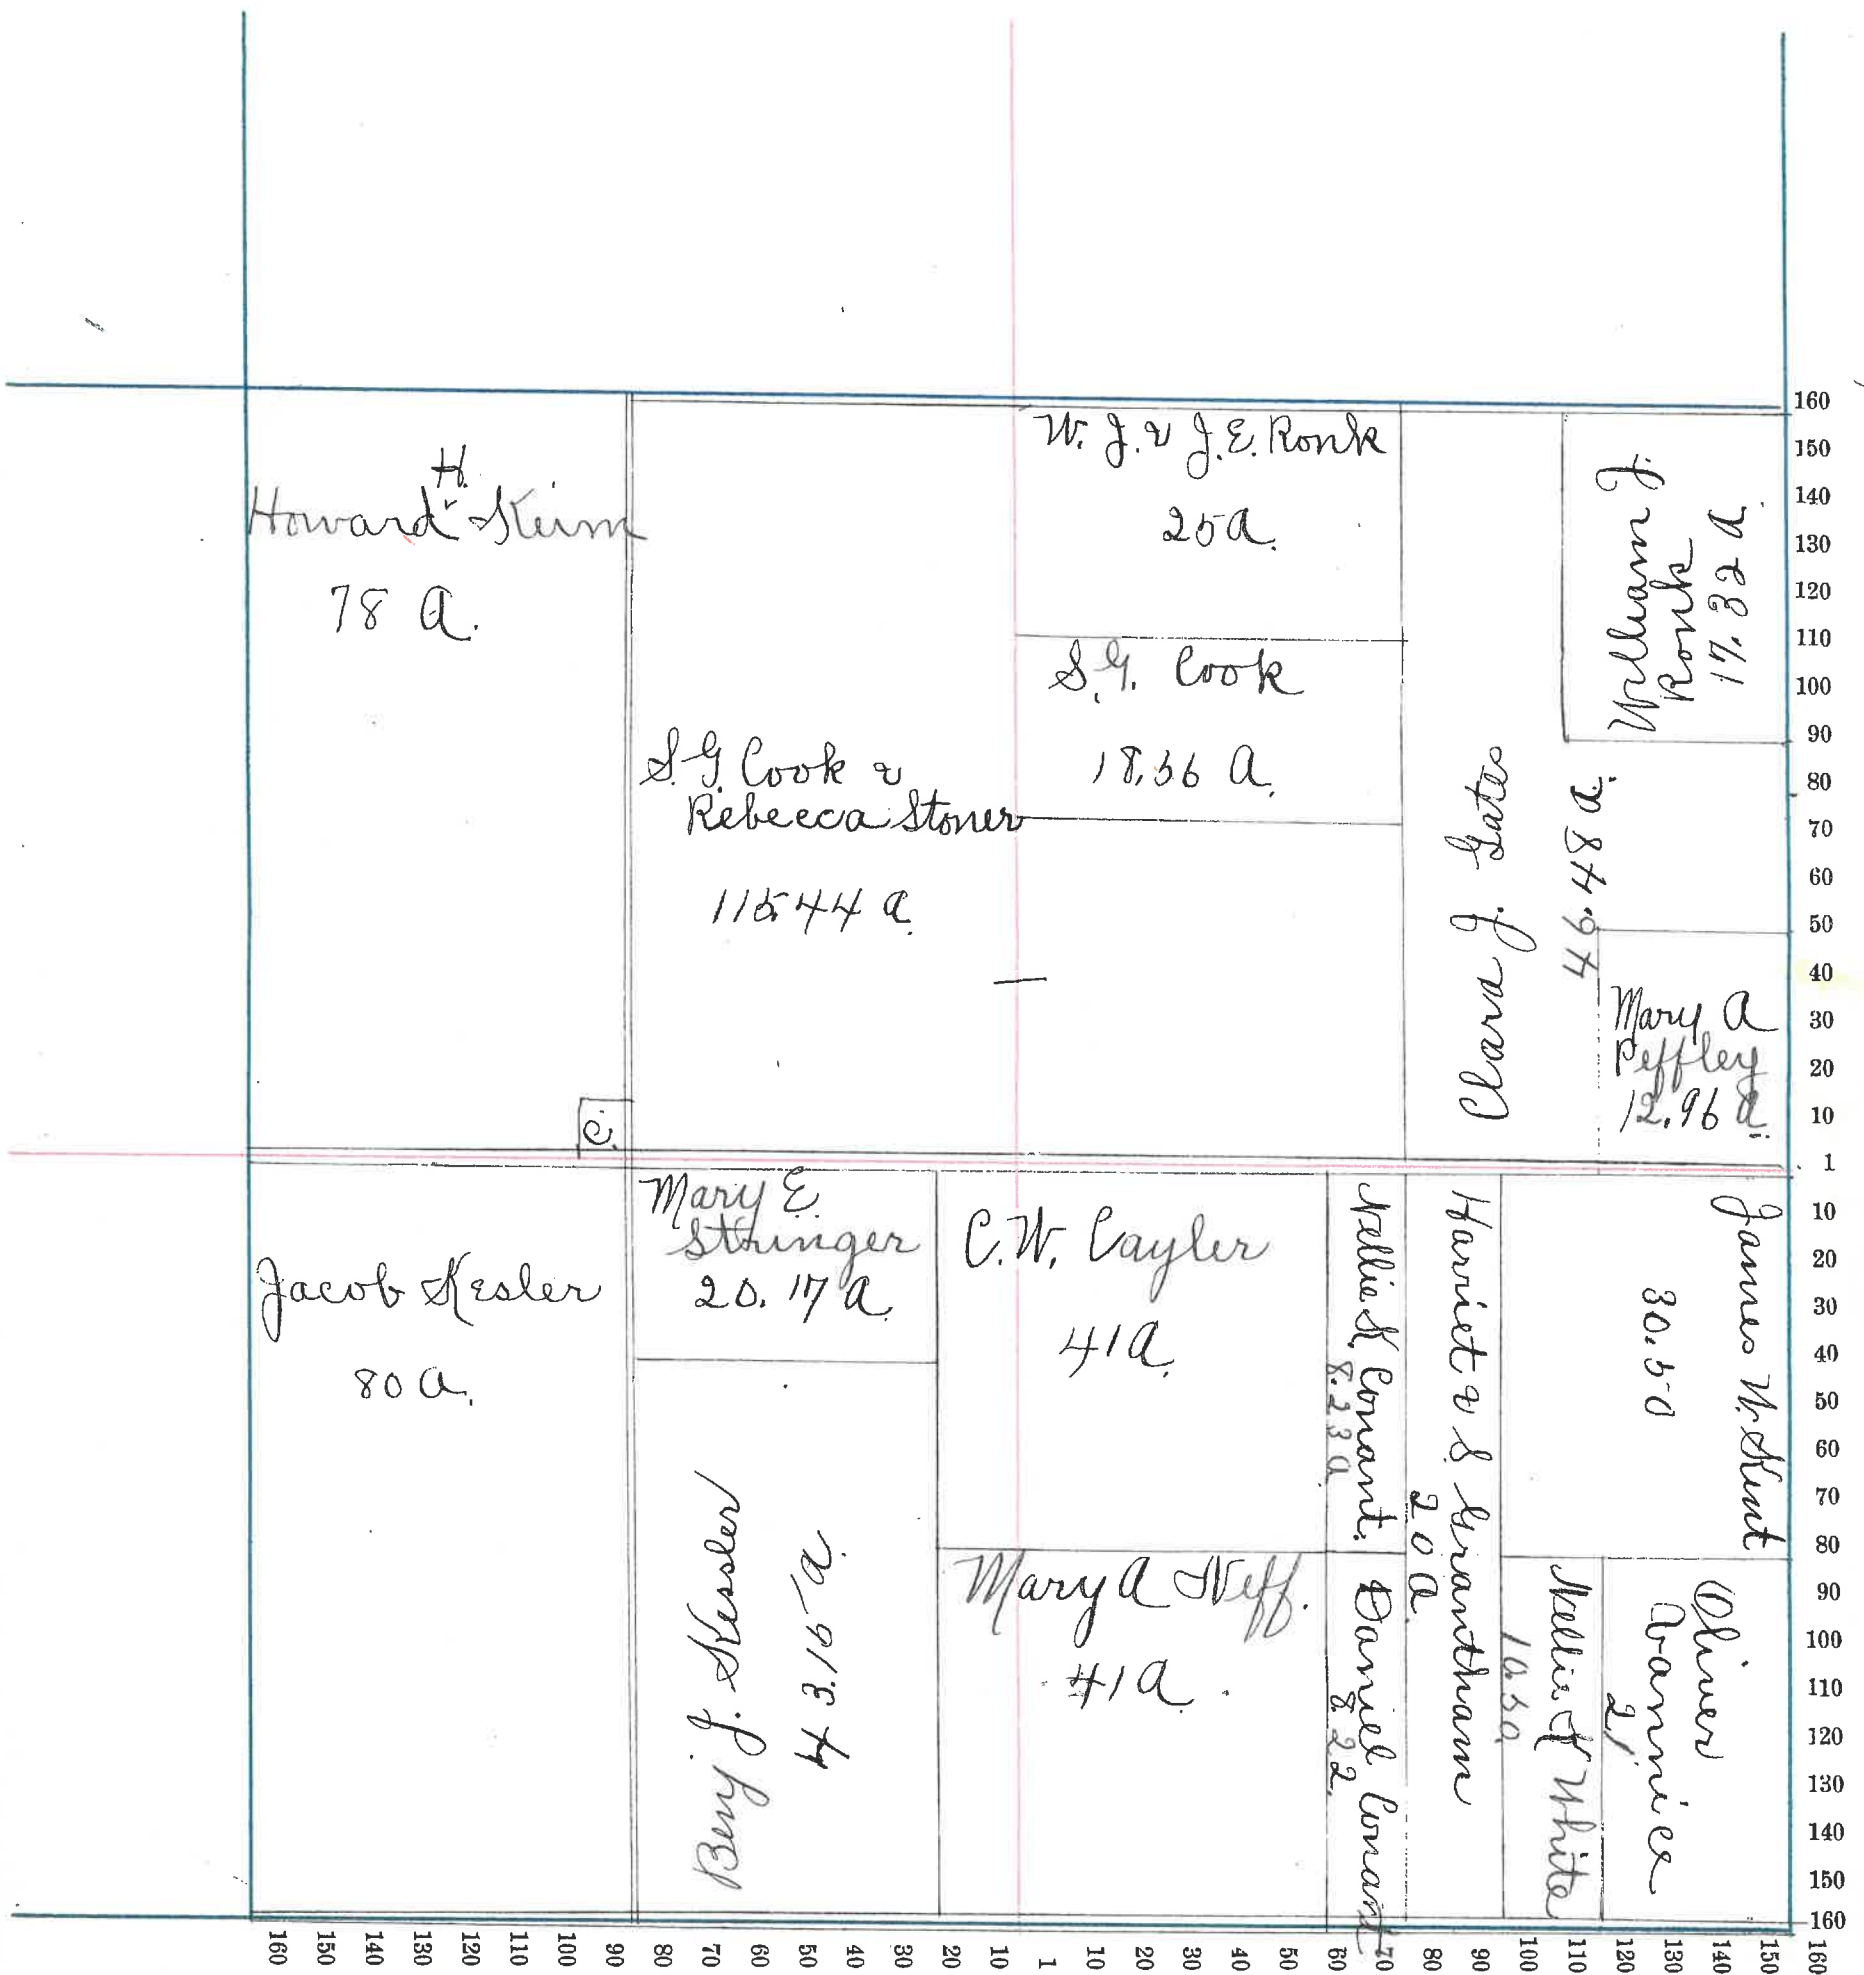 Howard H. Keim
78 A.
S.G. Cook &
Rebecca Stoner
115.44 A.
W. J. & J. E. Ronk
25 A.
S. G. Cook
18.56 A.
Clara J. Gates
46.48 A.
William J.
Ronk
17.32 A.
Mary A
Peffley
12.96 A.
C.
Jacob Kesler
80 A.
Mary E.
Stringer
20.17 A.
Benj J. Kessler
43.15 A.
C. W. Cayler
41 A.
Mary A Neff.
41 A.
Nellie K. Conant.
8.23 A
Daniel Conant
8.22
Harriet & S. Grantham
20 A
James W. Kent
30.50
Nellie F White
10.50
Oliver
Vannice
21
160
150
140
130
120
110
100
90
80
70
60
50
40
30
20
10
1
10
20
30
40
50
60
70
80
90
100
110
120
130
140
150
160
160 150 140 130 120 110 100 90 80 70 60 50 40 30 20 10 1 10 20 30 40 50 60 70 80 90 100 110 120 130 140 150 160